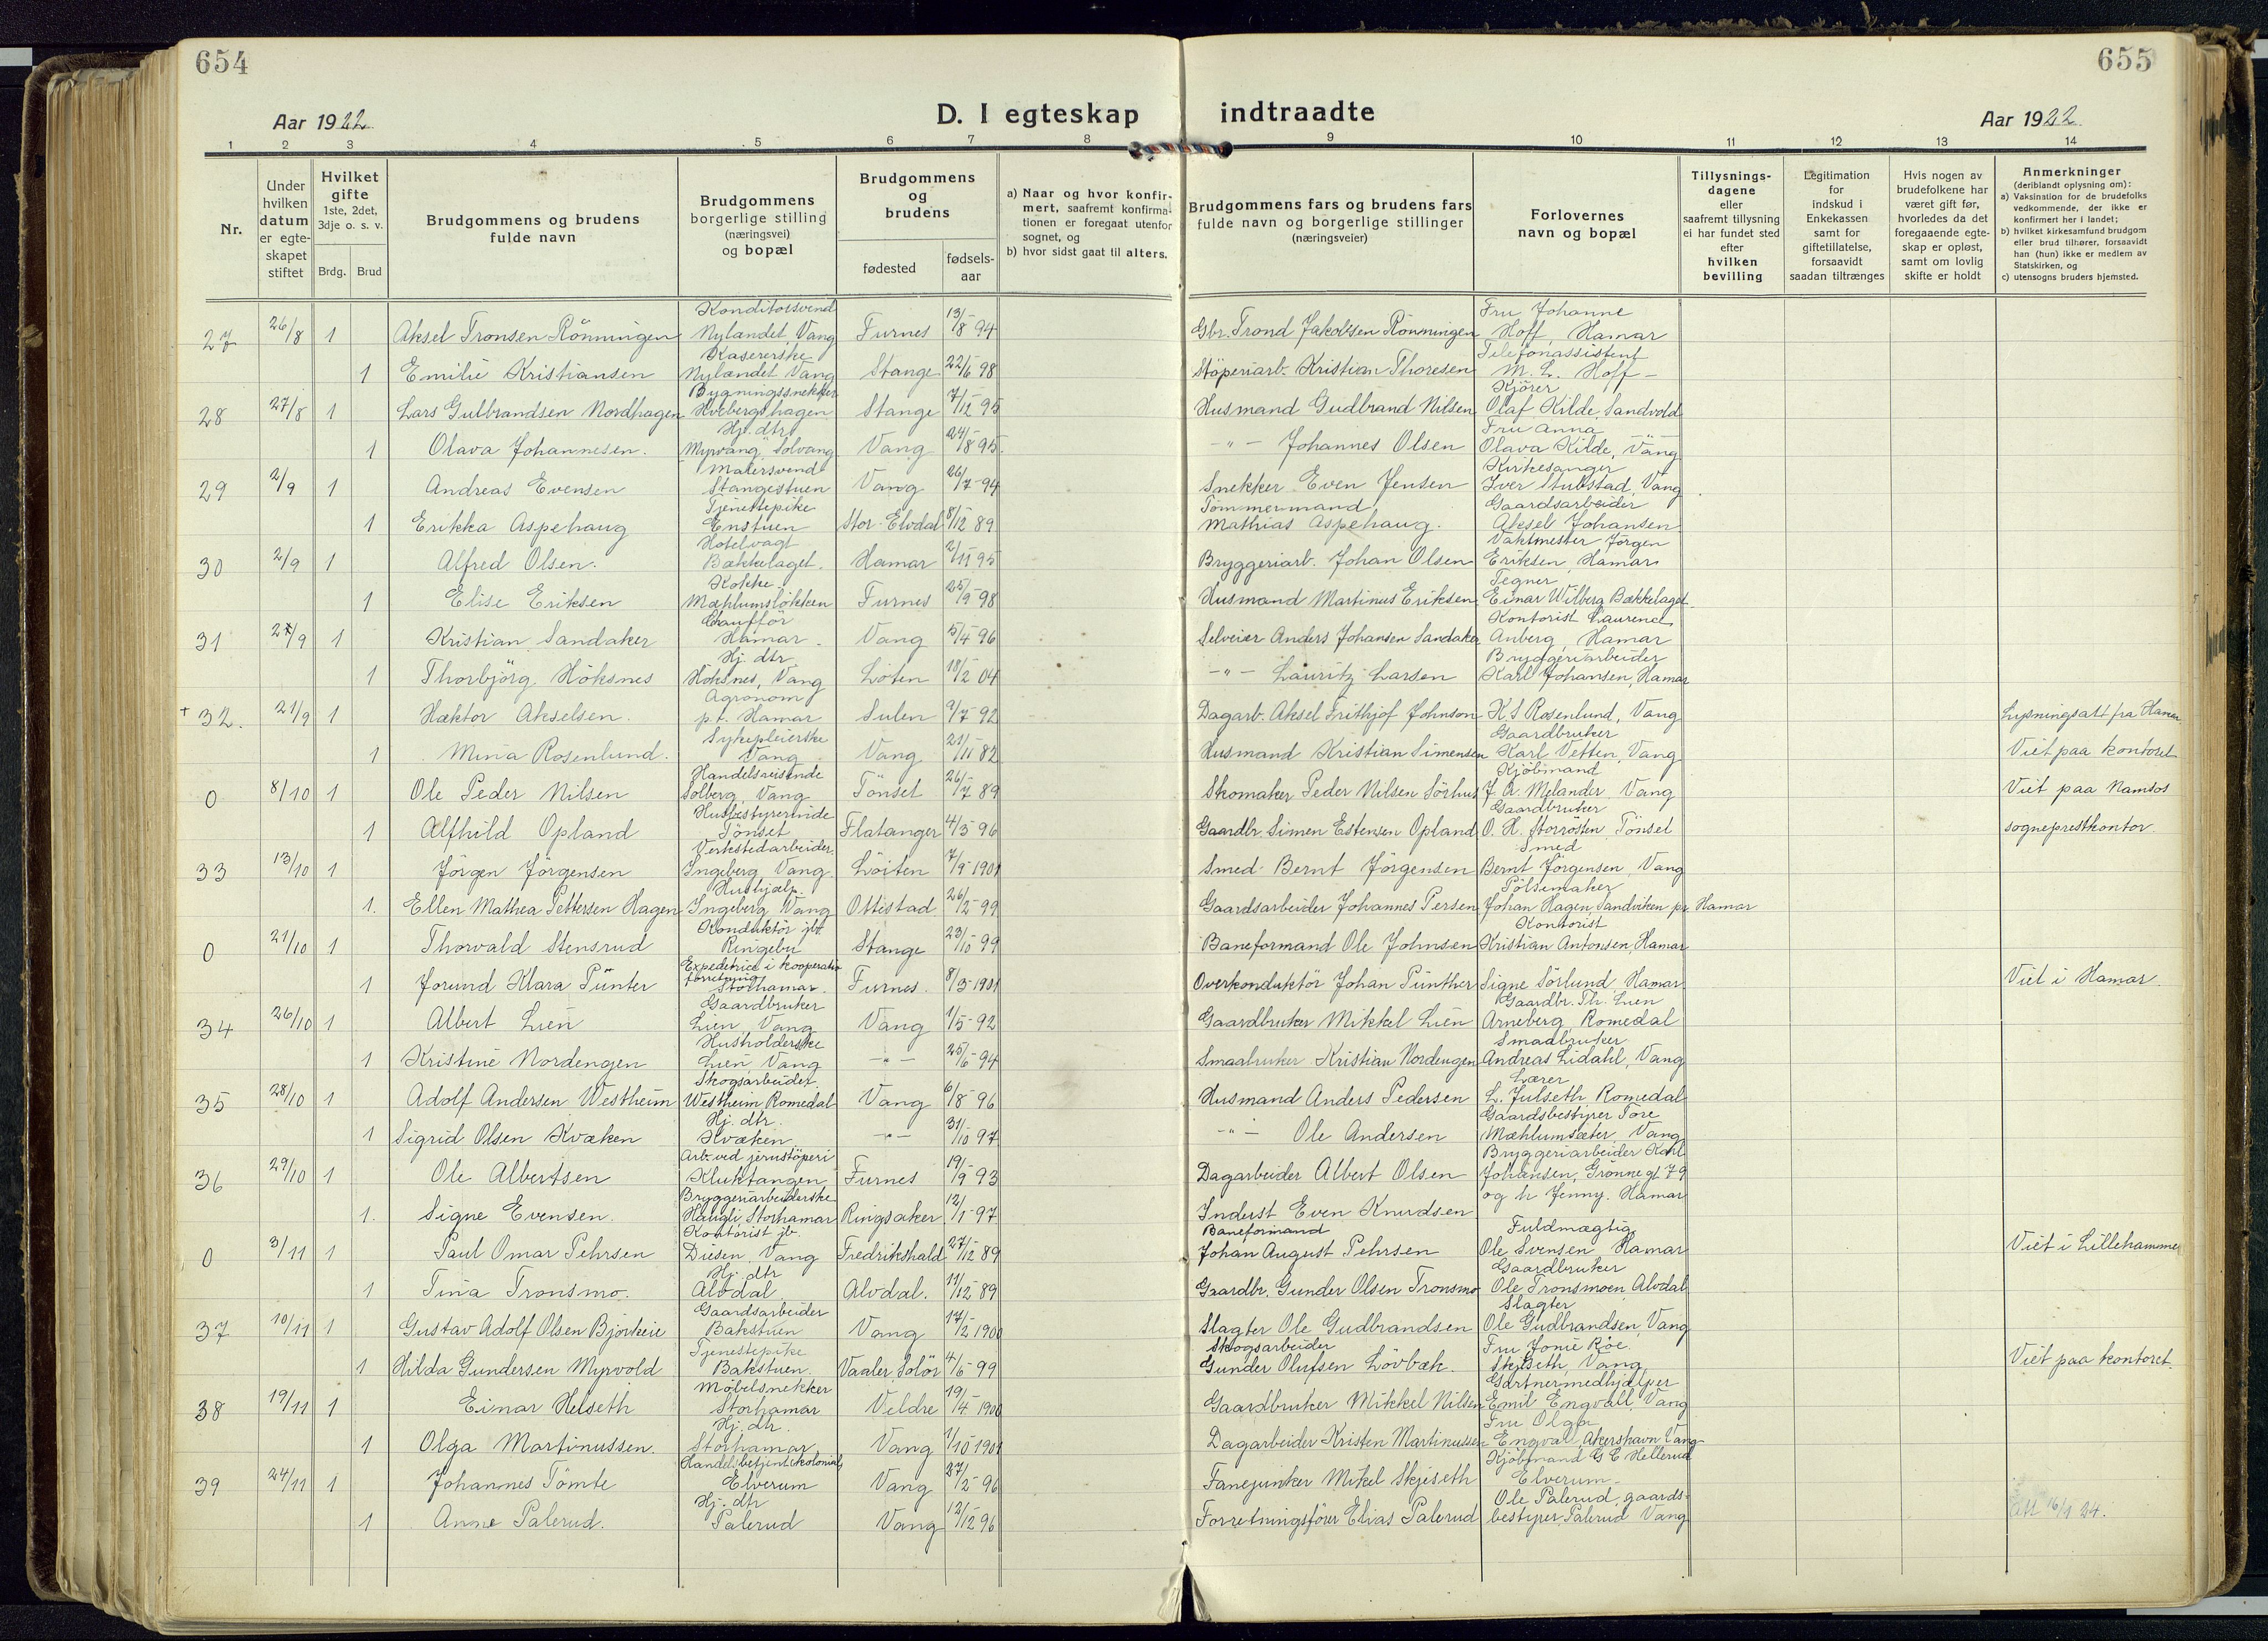 654
655
Aar 1922
D. I egteskap indtraadte
Aar 1922
1 2 3 4 5 6 7 8 9 10 11 12 13 14
Nr.
Under hvilken datum er egte-skapet stiftet
Hvilket gifte 1ste, 2det, 3dje o. s. v.
Brdg. Brud
Brudgommens og brudens fulde navn
Brudgommens borgerlige stilling (næringsvei) og bopæl
Brudgommens og brudens
fødested
fødsels-aar
a) Naar og hvor konfir-mert, saafremt konfirma-tionen er foregaat utenfor sognet, og
b) hvor sidst gaat til alters.
Brudgommens fars og brudens fars fulde navn og borgerlige stillinger (næringsveier)
Forlovernes navn og bopæl
Tillysnings-dagene eller saafremt tillysning ei har fundet sted efter hvilken bevilling
Legitimation for indskud i Enkekassen samt for giftetillatelse, forsaavidt saadan tiltrænges
Hvis nogen av brudefolkene har været gift før, hvorledes da det foregaaende egte-skap er opløst, samt om lovlig skifte er holdt
Anmerkninger (deriblandt oplysning om):
a) Vaksination for de brudefolks vedkommende, der ikke er konfirmert her i landet;
b) hvilket kirkesamfund brudgom eller brud tilhører, forsaavidt han (hun) ikke er medlem av Statskirken, og
c) utensogns bruders hjemsted.
27 26/8 1 Aksel Tronsen Rönningen Konditorsvend Nylandet, Vang Furnes 13/8 94 Gbr. Trond Jakobsen Rönningen Fru Johanne Hoff, Hamar
1 Emilie Kristiansen Kasererske Nylandet Vang Stange 22/6 98 Stöperiarb. Kristian Thoresen Telefonassistent M. L. Hoff -
28 27/8 1 Lars Gulbrandsen Nordhagen Bygningssnekker Hvebergshagen Stange 7/12 95 Husmand Gudbrand Nilsen Kjörer Olaf Kilde, Sandvold
1 Olava Johannesen. Hj. dtr. Myrvang, Solvang Vang 24/8 95. -"- Johannes Olsen Fru Anna Olava Kilde, Vang
29 2/9 1 Andreas Evensen Malersvend Stangestuen Vang 26/7 94 Snekker Even Jensen Kirkesanger Iver Stubstad, Vang
1 Erikka Aspehaug Tjenestepike Enstuen Stor-Elvdal 8/12 89 Tömmermand Mathias Aspehaug. Gaardsarbeider Aksel Johansen
30 2/9 1 Alfred Olsen. Hotelvagt Bækkelaget. Hamar 2/11 95 Bryggeriarb. Johan Olsen Vaktmester Jörgen Eriksen, Hamar
1 Elise Eriksen Kokke Mæhlumslökken Furnes 25/9 98 Husmand Martinus Eriksen Tegner Einar Wilberg Bækkelaget.
31 27/9 1 Kristian Sandaker Chaufför Hamar Vang 5/4 96 Selveier Anders Johansen Sandaker Kontorist Laurend Anberg, Hamar
1 Thorbjörg Höksnes Hj. dtr. Höksnes, Vang Löten 18/2 04 -"- Lauritz Larsen Bryggeriarbeider Karl Johansen, Hamar
+ 32. 21/9 1 Hæktor Akselsen. Agronom p.t. Hamar Sulen 9/7 92 Dagarb. Aksel Frithjof Johnson K. S Rosenlund, Vang Lysningsatt fra Hamar
1 Mina Rosenlund. Sykepleierske Vang Vang 21/11 82 Husmand Kristian Simensen Gaardbruker Karl Vetten, Vang Viet paa kontoret
0 8/10 1 Ole Peder Nilsen Handelsreisende Solberg, Vang Tönset 26/7 89 Skomaker Peder Nilsen Sörhus Kjöbmand J. A. Melander Vang Viet paa Namsos
1 Alfhild Opland Husbestyrerinde Tönset Flatanger 4/3 96 Gaardbr. Simen Estensen Opland Gaardbruker O. H. Storrösten, Tönset sogneprestkontor
33 13/10 1 Jörgen Jörgensen Verkstedarbeider Ingeberg Vang. Löiten 7/9 1901 Smed Bernt Jörgensen Smed Bernt Jörgensen, Vang
1. Ellen Mathea Pettersen Hagen Hushjælp. Ingeberg Vang Ottestad 26/2 99 Gaardsarbeider Johannes Persen Pölsemaker Johan Hagen, Sandviken pr Hamar
0 21/10 1 Thorvald Stensrud Konduktör jb. Ringebu Stange 23/10 99 Baneformand Ole Johnsen Kontorist Kristian Antonsen, Hamar
1 Jorund Klara Pünter Expedetrice i kooperativ forretning Storhamar. Furnes. 8/3 1901 Overkonduktör Johan Pünther Signe Sörlund, Hamar Viet i Hamar.
34 26/10 1 Albert Lien Gaardbruker Lien, Vang Vang 1/5 92 Gaardbruker Mikkel Lien Gaardbr. Th. Lien Arneberg, Romedal
1 Kristine Nordengen Husholderske Lien, Vang -"- 25/6 94 Smaabruker Kristian Nordengen Smaabruker Andreas Lidahl, Vang
35 28/10 1 Adolf Andersen Westheim Skogsarbeider Westheim Romedal Vang 6/8 96 Husmand Anders Pedersen Lærer L. Julseth Romedal
1 Sigrid Olsen Kvæken Hj. dtr. Kvæken. -"- 31/10 97 -"- Ole Andersen Gaardsbestyrer Tore Mæhlumsæter, Vang
36 29/10 1 Ole Albertsen Arb. ved jernstöperi Kluktangen Furnes 19/9 93 Dagarbeider Albert Olsen Bryggeriarbeider Karl Johansen, Grönnegt 79
1. Signe Evensen. Bryggeriarbeiderske Haugli, Storhamar Ringsaker 12/1 97 Inderst Even Knudsen og h Jenny. Hamar
0 3/11 1 Paul Omar Pehrsen Kontorist jb. Disen, Vang Fredrikshald 27/12 89 Baneformand Johan August Pehrsen Fuldmægtig Ole Svensen Hamar Viet i Lillehammer
1 Tina Tronsmo. Hj. dtr Alvdal Alvdal. 11/12 89 Gaardbr. Gunder Olsen Tronsmo Gaardbruker Ole Tronsmoen, Alvdal
37 10/11 1 Gustav Adolf Olsen Björkeie Gaardsarbeider Bakstuen Vang 17/2 1900 Slagter Ole Gudbrandsen Slagter Ole Gudbrandsen, Vang
1 Hilda Gundersen Myrvold Tjenestepike Bakstuen. Vaaler, Solör 4/6 99 Skogsarbeider Gunder Olufsen Lövbæk Fru Jonie Roe Skjeseth, Vang Viet paa kontoret.
38 19/11 1 Einar Helseth Möbelsnekker Storhamar Veldre 19/4 1900 Gaardbruker Mikkel Nilsen Gartnermedhjælper Emil Engvall, Vang
1 Olga Martinussen. Hj. dtr. Storhamar, Vang 1/10 1901 Dagarbeider Kristen Martinussen Fru Olga Engval, Akershavn Vang
39 24/11 1 Johannes Tömte Handelsbetjent kolonial Elverum Vang 27/2 96 Fanejunker Mikel Skjeseth Kjöbmand G E Hellerud Elverum-
1 Anne Palerud. Hj. dtr Palerud Vang 12/12 96 Forretningsfører Elias Palerud Ole Palerud, gaards-bestyrer, Palerud Vang Att 16/9 24.